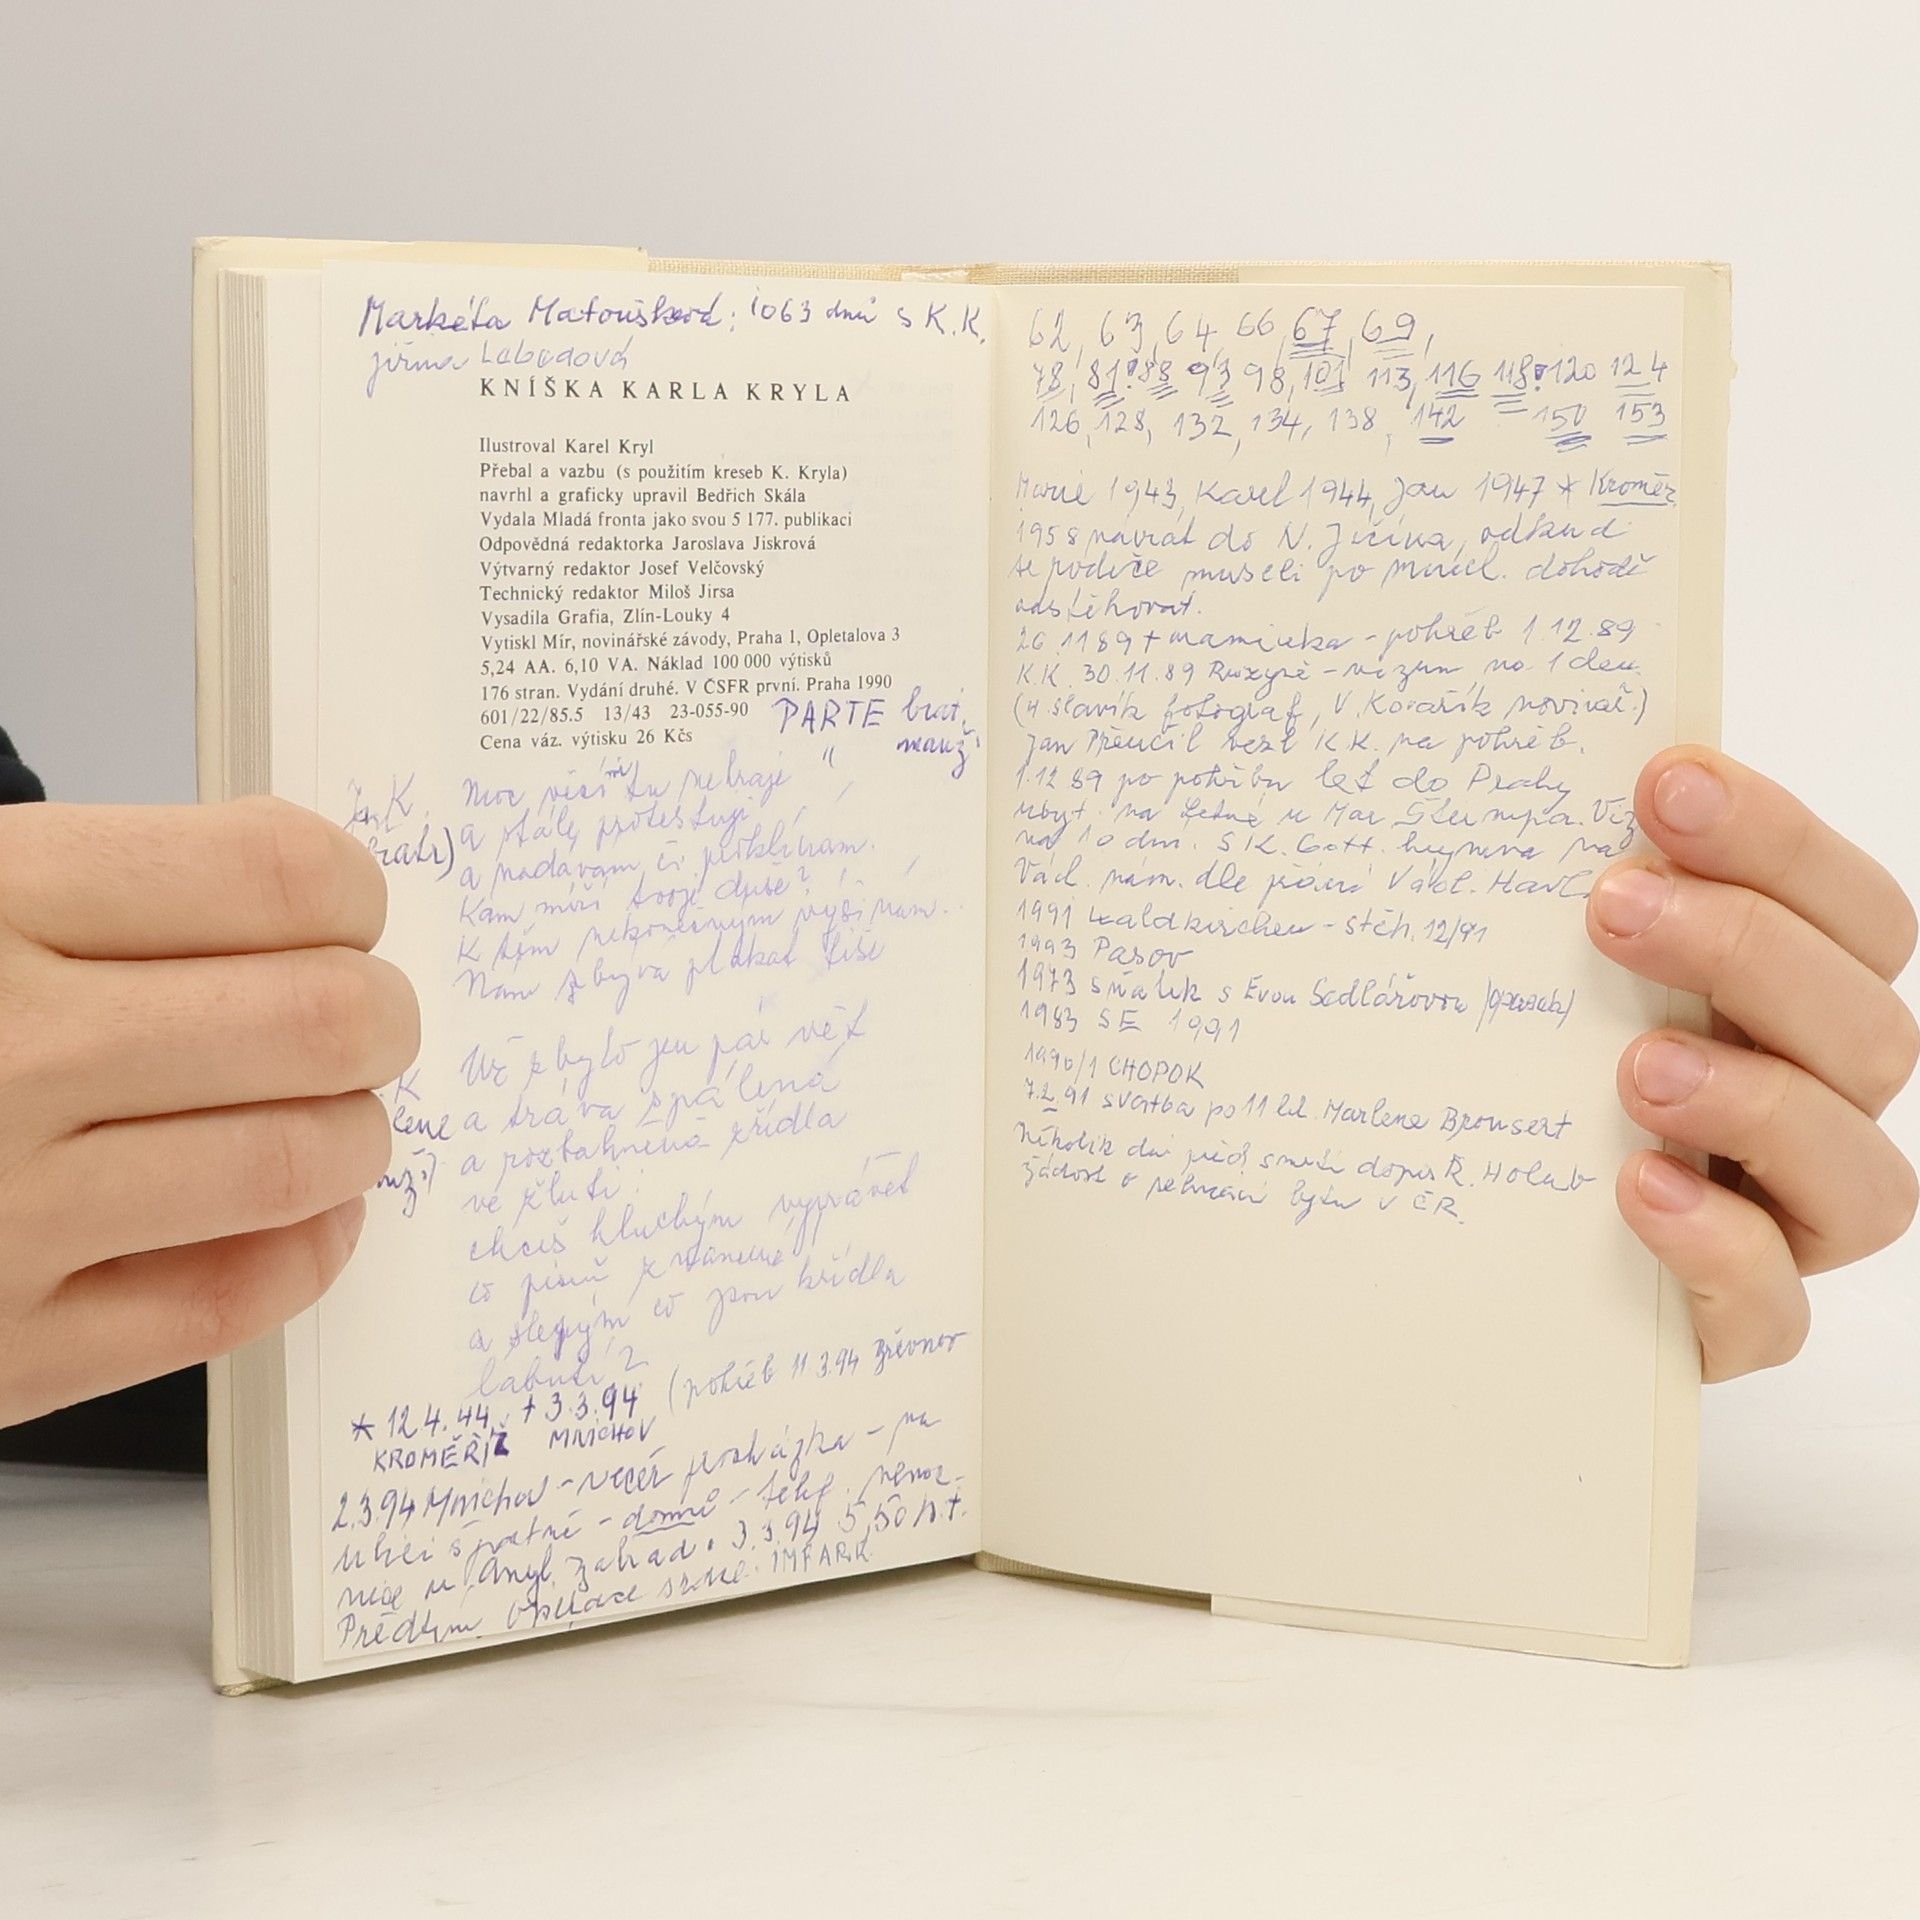 Markéta Matoušková: 1063 dnů s K.K.
Jiřina Lebedová
KNÍŠKA KARLA KRYLA
Ilustroval Karel Kryl
Přebal a vazbu (s použitím kreseb K. Kryla)
navrhl a graficky upravil Bedřich Skála
Vydala Mladá fronta jako svou 5 177. publikaci
Odpovědná redaktorka Jaroslava Jiskrová
Výtvarný redaktor Josef Velčovský
Technický redaktor Miloš Jirsa
Vysadila Grafia, Zlín-Louky 4
Vytiskl Mír, novinářské závody, Praha 1, Opletalova 3
5,24 AA. 6,10 VA. Náklad 100 000 výtisků
176 stran. Vydání druhé. V ČSFR první. Praha 1990
601/22/85.5 13/43 23-055-90
Cena váz. výtisku 26 Kčs
PARTE brat.
" manž.
Moc věcí tu nehraje
a stále protestuji
a nadávám či proklínám.
Kam míří tvoje duše?
K těm nekonečným výšinám..
Nám zbývá plakat tiše
Už zbylo jen pár vět
a tráva spálená
a roztahnená křídla
ve žluti:
chceš hluchým vyprávět
co písně znamená
a slepým co jsou křídla
labutí?
* 12.4.44 + 3.3.94 (pohřeb 11.3.94 Břevnov
KROMĚŘÍŽ MNICHOV
2.3.94 Mnichov - večer procházka - na
ulici špatně - domů - telef. nemoc-
nice u Angl. zahrad. 3.3.94 5,50 h. †.
Předtím operace srdce. IMFARK.
62, 63, 64, 66, 67, 69,
78, 81! 88 93 98, 101 113, 116 118! 120 124
126, 128, 132, 134, 138, 142 150 153
Marie 1943, Karel 1944, Jan 1947 * Kroměř.
1958 návrat do N. Jičína, odkud
se rodiče museli po mnich. dohodě
odstěhovat.
26.11 89 + maminka - pohřeb 1.12.89
K.K. 30.11.89 Ruzyně - vízum na 1 den.
(H. Slavík fotograf, V. Kovařík novinář.)
Jan Přeučil vezl K.K. na pohřeb.
1.12 89 po pohřbu let do Prahy
ubyt. na Letné u Mar. Štumpa. Víz
na 10 dní. S K. Gott. hymna na
Václ. nám. dle přání Václ. Havla
1991 Waldkirchen - stěh. 12/91
1993 Pasov
1973 sňatek s Evou Sedlářovou
1983 SE 1991
1990/1 CHOPOK
7.2.91 svatba po 11 let. Marlene Bronsert
Několik dní před smrtí dopis R. Holub
žádost o přidělení bytu v ČR.